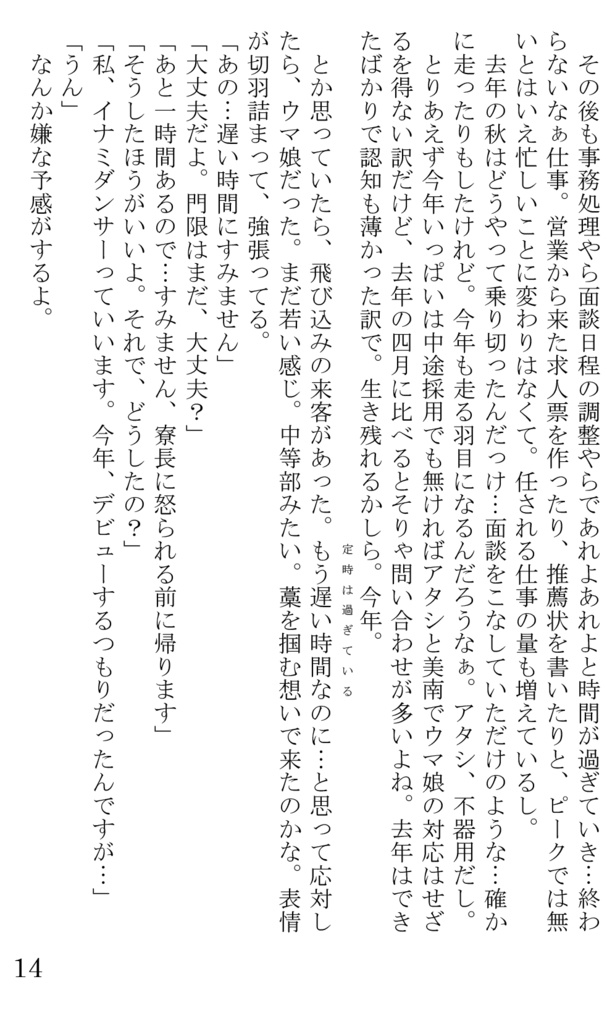 その後も事務処理やら面談日程の調整やらであれよあれよと時間が過ぎていき…終わ
らないなぁ仕事。営業から来た求人票を作ったり、推薦状を書いたりと、ピークでは無
いとはいえ忙しいことに変わりはなくて。任される仕事の量も増えているし。
去年の秋はどうやって乗り切ったんだっけ…面談をこなしていただけのような…確か
に走ったりもしたけれど。今年も走る羽目になるんだろうなぁ。アタシ、不器用だし。
とりあえず今年いっぱいは中途採用でも無ければアタシと美南でウマ娘の対応はせざ
るを得ない訳だけど、去年の四月に比べるとそりゃ問い合わせが多いよね。去年はでき
たばかりで認知も薄かった訳で。生き残れるかしら。今年。
定時は過ぎている
とか思っていたら、飛び込みの来客があった。もう遅い時間なのに…と思って応対し
たら、ウマ娘だった。まだ若い感じ。中等部みたい。藁を掴む想いで来たのかな。表情
が切羽詰まって、強張ってる。
「あの…遅い時間にすみません」
「大丈夫だよ。門限はまだ、大丈夫？」
「あと一時間あるので…すみません、寮長に怒られる前に帰ります」
「そうしたほうがいいよ。それで、どうしたの？」
「私、イナミダンサーっていいます。今年、デビューするつもりだったんですが…」
「うん」
なんか嫌な予感がするよ。
14